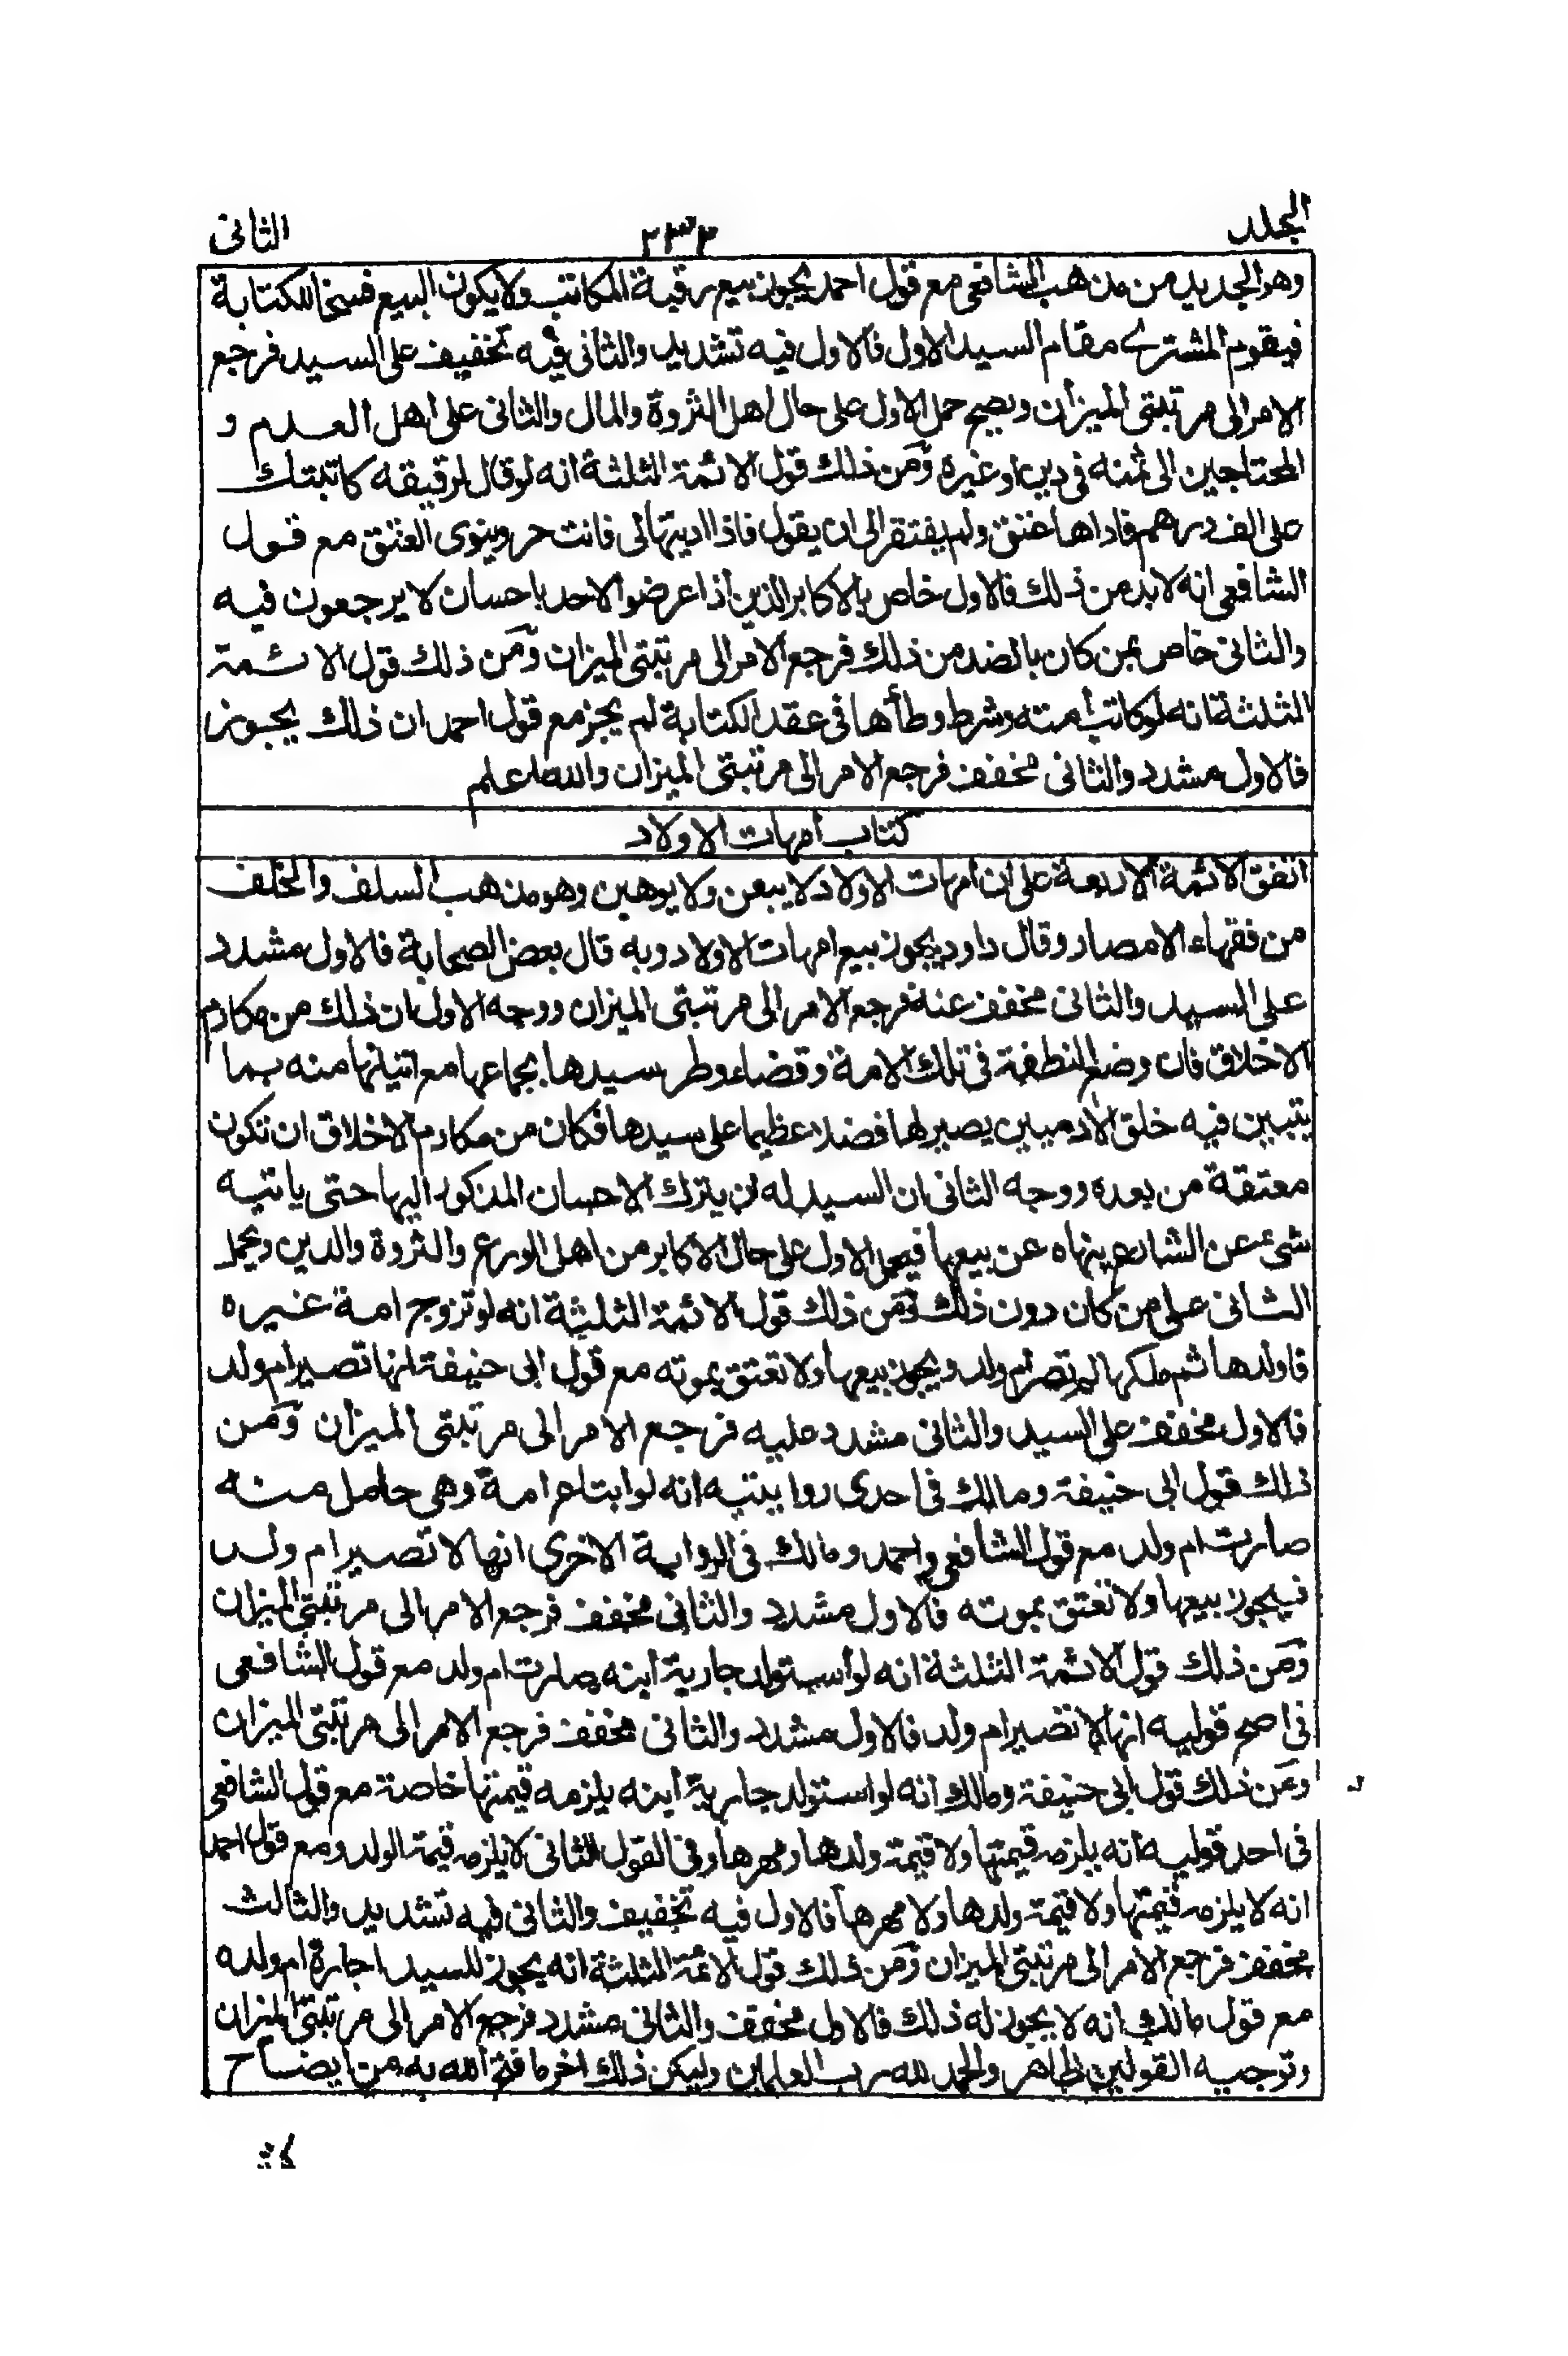 المجلد ٢٣٢ الثانى
وهو الجديد من مذهب الشافعى مع قول احمد يجوز بيع رقبة المكاتب ولا يكون البيع فسخا للكتابة
فيقوم المشترى مقام السيد الاول فالاول فيه تشديد والثانى فيه تخفيف على السيد فرجع
الامر الى مرتبتى الميزان ويصح حمل الاول على حال اهل الثروة والمال والثانى على اهل العدم و
المحتاجين الى ثمنه فى دين او غيره ومن ذلك قول الائمة الثلثة انه لو قال لرقيقه كاتبتك
على الف درهم فاداها عتق ولم يفتقر الى ان يقول فاذا اديتها لى فانت حر وينوى العتق مع قول
الشافعى انه لا بد من ذلك فالاول خاص بالاكابر الذين اذا عرضوا لاحد باحسان لا يرجعون فيه
والثانى خاص بمن كان بالضد من ذلك فرجع الامر الى مرتبتى الميزان ومن ذلك قول الائمة
الثلثة انه لو كاتب امته وشرط وطأها فى عقد الكتابة لم يجز مع قول احمد ان ذلك يجوز
فالاول مشدد والثانى مخفف فرجع الامر الى مرتبتى الميزان والله اعلم
كتاب امهات الاولاد
اتفق الائمة الاربعة على ان امهات الاولاد لا يبعن ولا يوهبن وهو مذهب السلف والخلف
من فقهاء الامصار وقال داود يجوز بيع امهات الاولاد وبه قال بعض الصحابة فالاول مشدد
على السيد والثانى مخفف عنه فرجع الامر الى مرتبتى الميزان ووجه الاول ان ذلك من مكارم
الاخلاق فان وضع النطفة فى تلك الامة وقضاء وطر سيدها بجماعها مع اتيانها منه بما
يتبين فيه خلق الآدميين يصير لها فضلا عظيما على سيدها فكان من مكارم الاخلاق ان تكون
معتقة من بعده ووجه الثانى ان السيد له ان يترك الاحسان المذكور اليها حتى ياتيه
شىء عن الشارع ينهاه عن بيعها فيحمل الاول على حال الاكابر من اهل الورع والثروة والدين ويحمل
الثانى على من كان دون ذلك ومن ذلك قول الائمة الثلثة انه لو تزوج امة غيره
فاولدها ثم ملكها لم تصر ام ولد ويجوز بيعها ولا تعتق بموته مع قول ابى حنيفة انها تصير ام ولد
فالاول مخفف على السيد والثانى مشدد عليه فرجع الامر الى مرتبتى الميزان ومن
ذلك قول ابى حنيفة ومالك فى احدى روايتيه انه لو ابتاع امة وهى حامل منه
صارت ام ولد مع قول الشافعى واحمد ومالك فى الرواية الاخرى انها لا تصير ام ولد
فيجوز بيعها ولا تعتق بموته فالاول مشدد والثانى مخفف فرجع الامر الى مرتبتى الميزان
ومن ذلك قول الائمة الثلثة انه لو استولد جارية ابنه صارت ام ولد مع قول الشافعى
فى اصح قوليه انها لا تصير ام ولد فالاول مشدد والثانى مخفف فرجع الامر الى مرتبتى الميزان
ومن ذلك قول ابى حنيفة ومالك انه لو استولد جارية ابنه يلزمه قيمتها خاصة مع قول الشافعى
فى احد قوليه انه يلزمه قيمتها ولا قيمة ولدها ومهرها وفى القول الثانى لا يلزمه قيمة الولد ومع قول احمد
انه لا يلزمه قيمتها ولا قيمة ولدها ولا مهرها فالاول فيه تخفيف والثانى فيه تشديد والثالث
مخفف فرجع الامر الى مرتبتى الميزان ومن ذلك قول الائمة الثلثة انه يجوز للسيد اجارة ام ولده
مع قول مالك انه لا يجوز له ذلك فالاول مخفف والثانى مشدد فرجع الامر الى مرتبتى الميزان
وتوجيه القولين ظاهر والحمد لله رب العلمين وليكن ذلك اخر ما فتح الله به من ايضاح